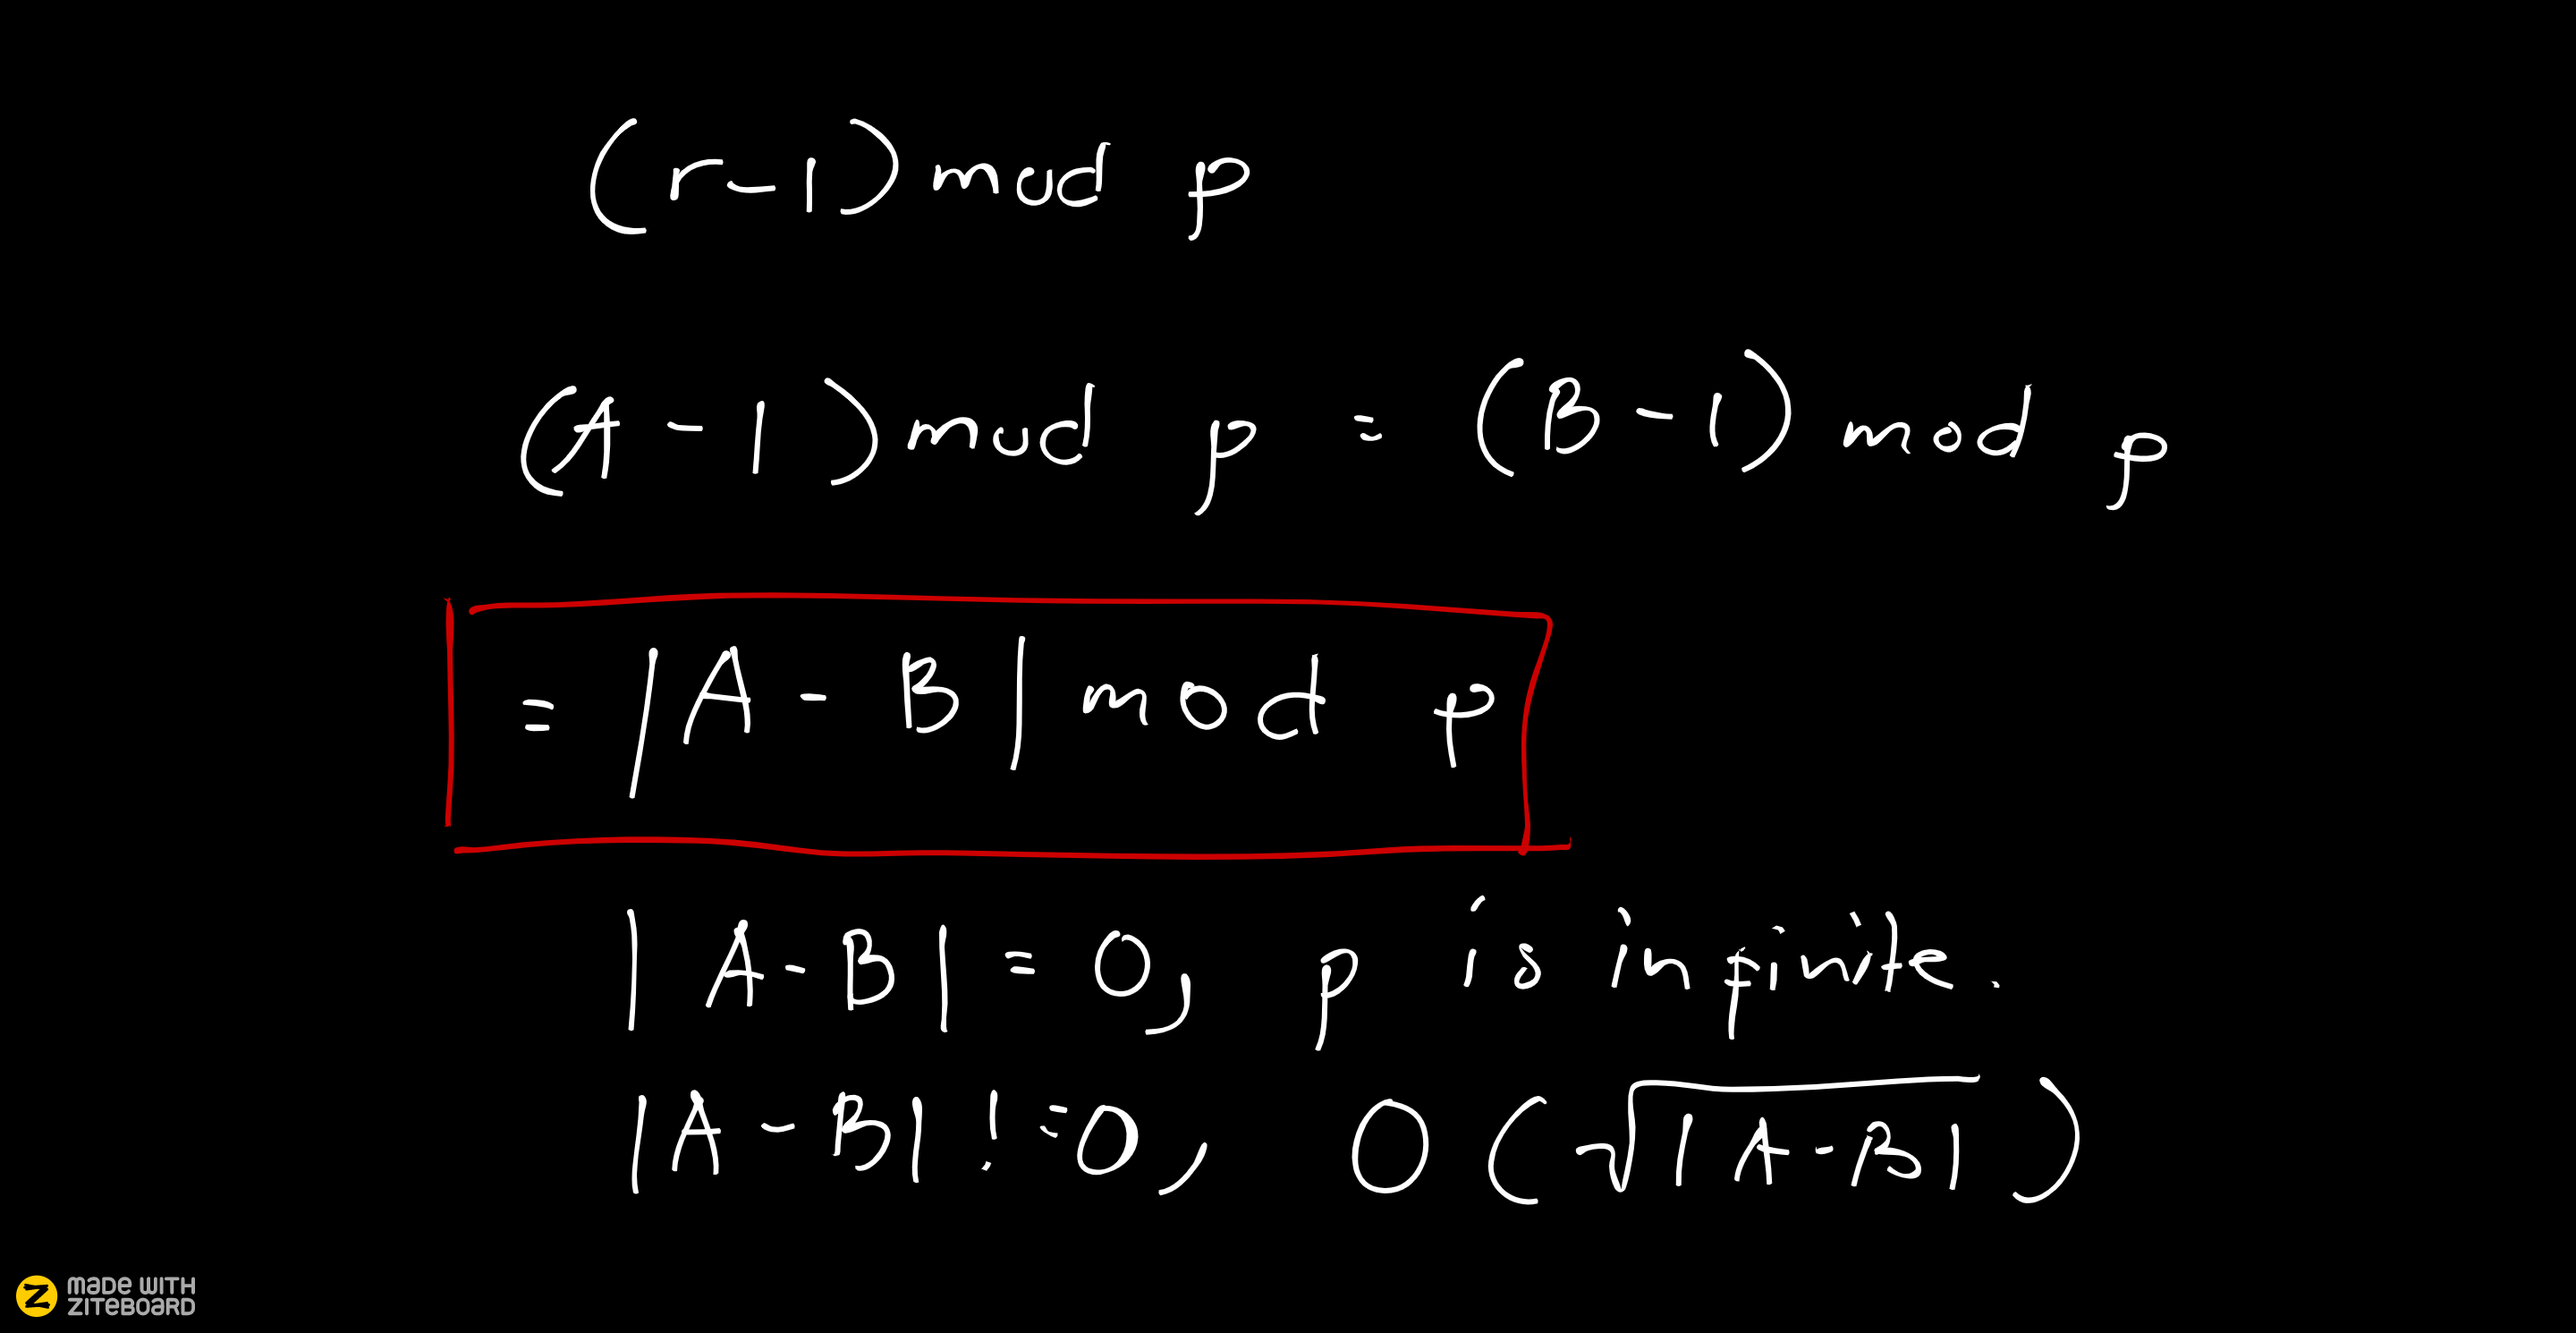 (r-1) mod p
(A-1) mod p = (B-1) mod p
= |A-B| mod p
|A-B| = 0, p is infinite.
|A-B| != 0, O(√|A-B|)
MADE WITH
ZITEBOARD